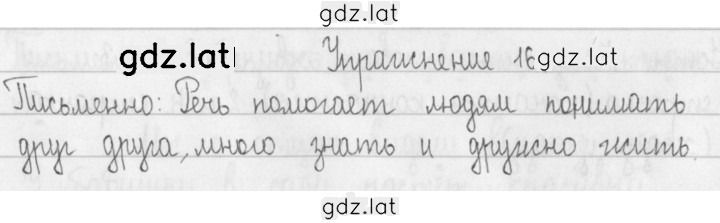 gdz.lat
gdz.lat Упражнение 16 gdz.lat
Письменно: Речь помогает людям понимать
друг друга, много знать и дружно жить.
gdz.lat